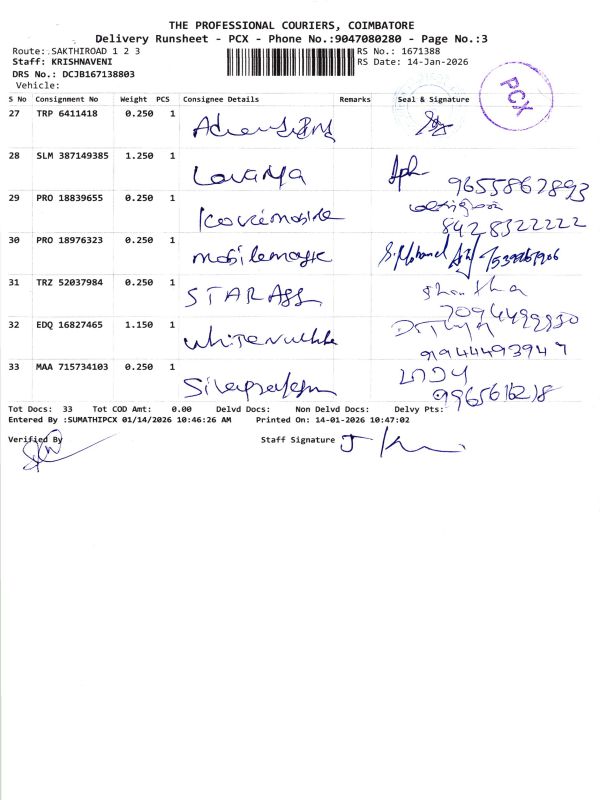 THE PROFESSIONAL COURIERS, COIMBATORE
Delivery Runsheet - PCX - Phone No.:9047080280 - Page No.:3
Route: SAKTHIROAD 1 2 3
RS No.: 1671388
Staff: KRISHNAVENI
RS Date: 14-Jan-2026
DRS No.: DCJB167138803
Vehicle:
PCX
S No Consignment No Weight PCS Consignee Details Remarks Seal & Signature
27 TRP 6411418 0.250 1
28 SLM 387149385 1.250 1 Lavanya
9655867893
29 PRO 18839655 0.250 1
8428322222
30 PRO 18976323 0.250 1 mobilemagic S. Mohamed
31 TRZ 52037984 0.250 1 STAR ASS
Shantha
32 EDQ 16827465 1.150 1
9194449394 7
33 MAA 715734103 0.250 1
Tot Docs: 33 Tot COD Amt: 0.00 Delvd Docs: Non Delvd Docs: Delvy Pts:
Entered By :SUMATHIPCX 01/14/2026 10:46:26 AM Printed On: 14-01-2026 10:47:02
Verified By Staff Signature